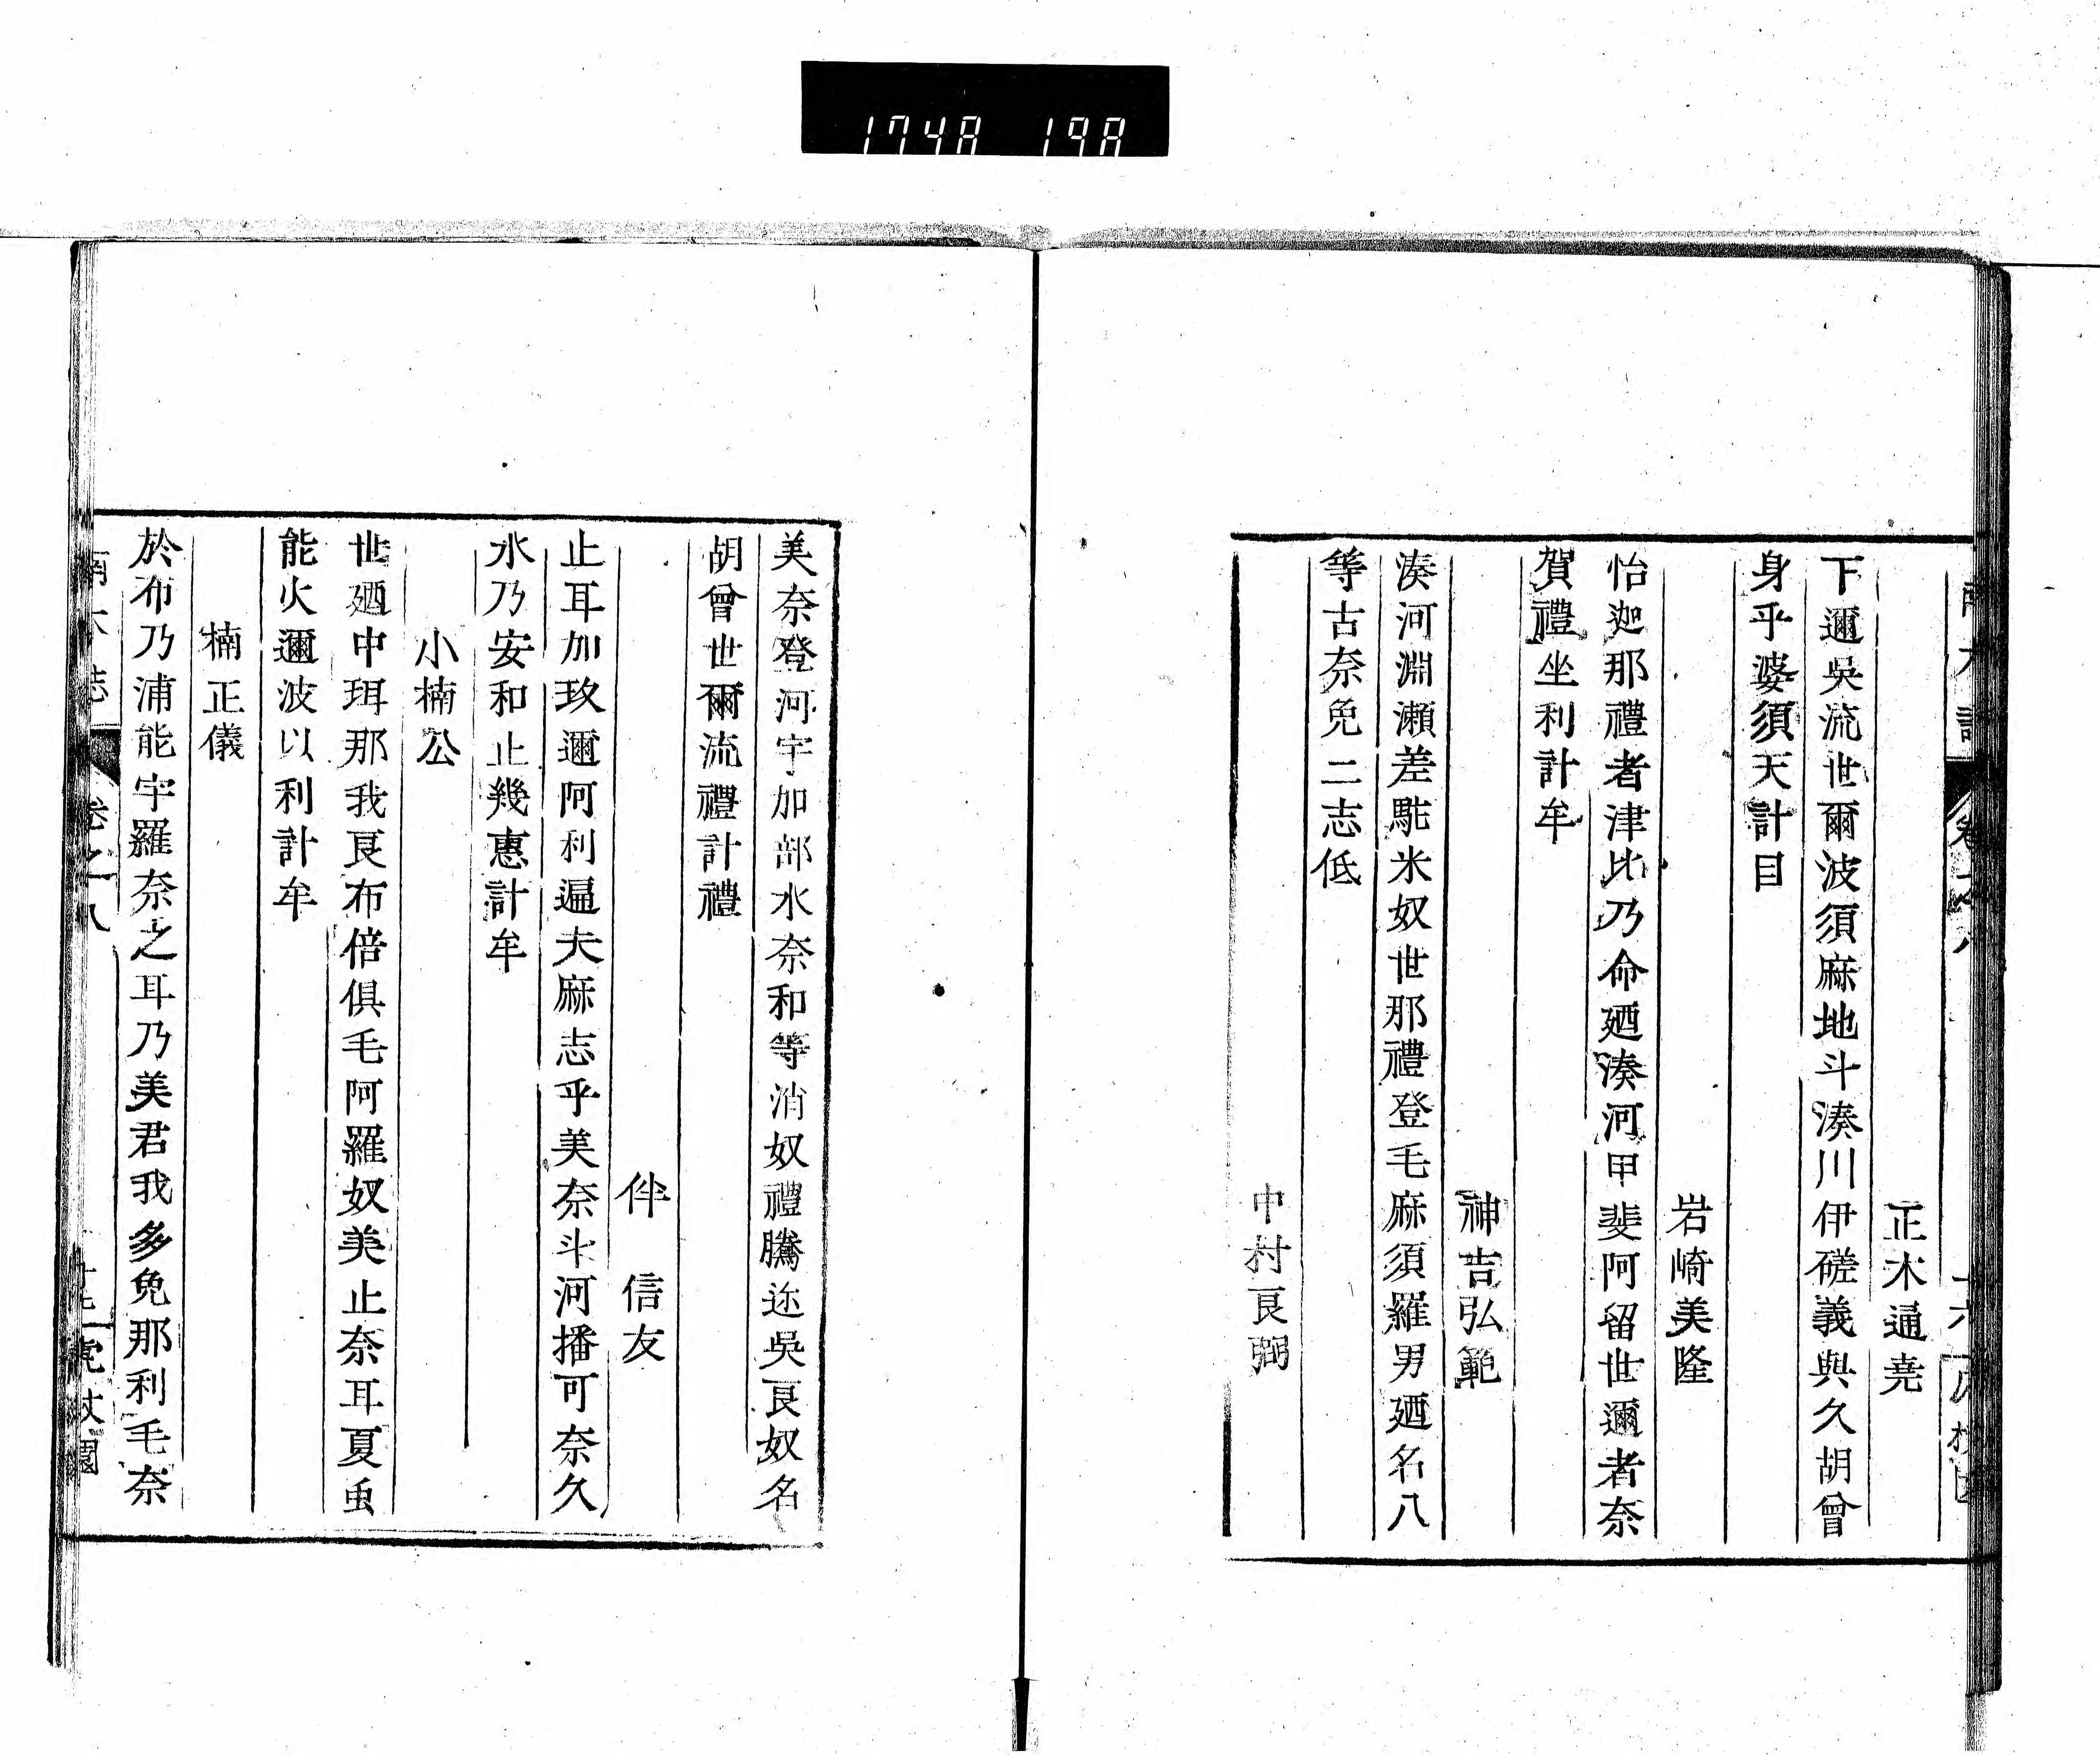 1748 198
正木通堯
下邇吳流世爾波須麻地斗湊川伊磋義與久胡曾
身乎婆須天計目
岩崎美隆
怡迦那禮者津比乃命廼湊河甲斐阿留世邇者奈
賀禮坐利計牟
神吉弘範
湊河淵瀬差駝米奴世那禮登毛麻須羅男廼名八
等古奈免二志低
中村良弼
美奈登河宇加部水奈和等消奴禮騰迩吳良奴名
胡曾世爾流禮計禮
伴信友
止耳加玖邇阿利逼夫麻志乎美奈斗河播可奈久
水乃安和止幾惠計牟
小楠公
世廼中珥那我良布倍俱毛阿羅奴美止奈耳夏虫
能火邇波以利計牟
楠正儀
於布乃浦能宇羅奈之耳乃美君我多免那利毛奈
卷之八